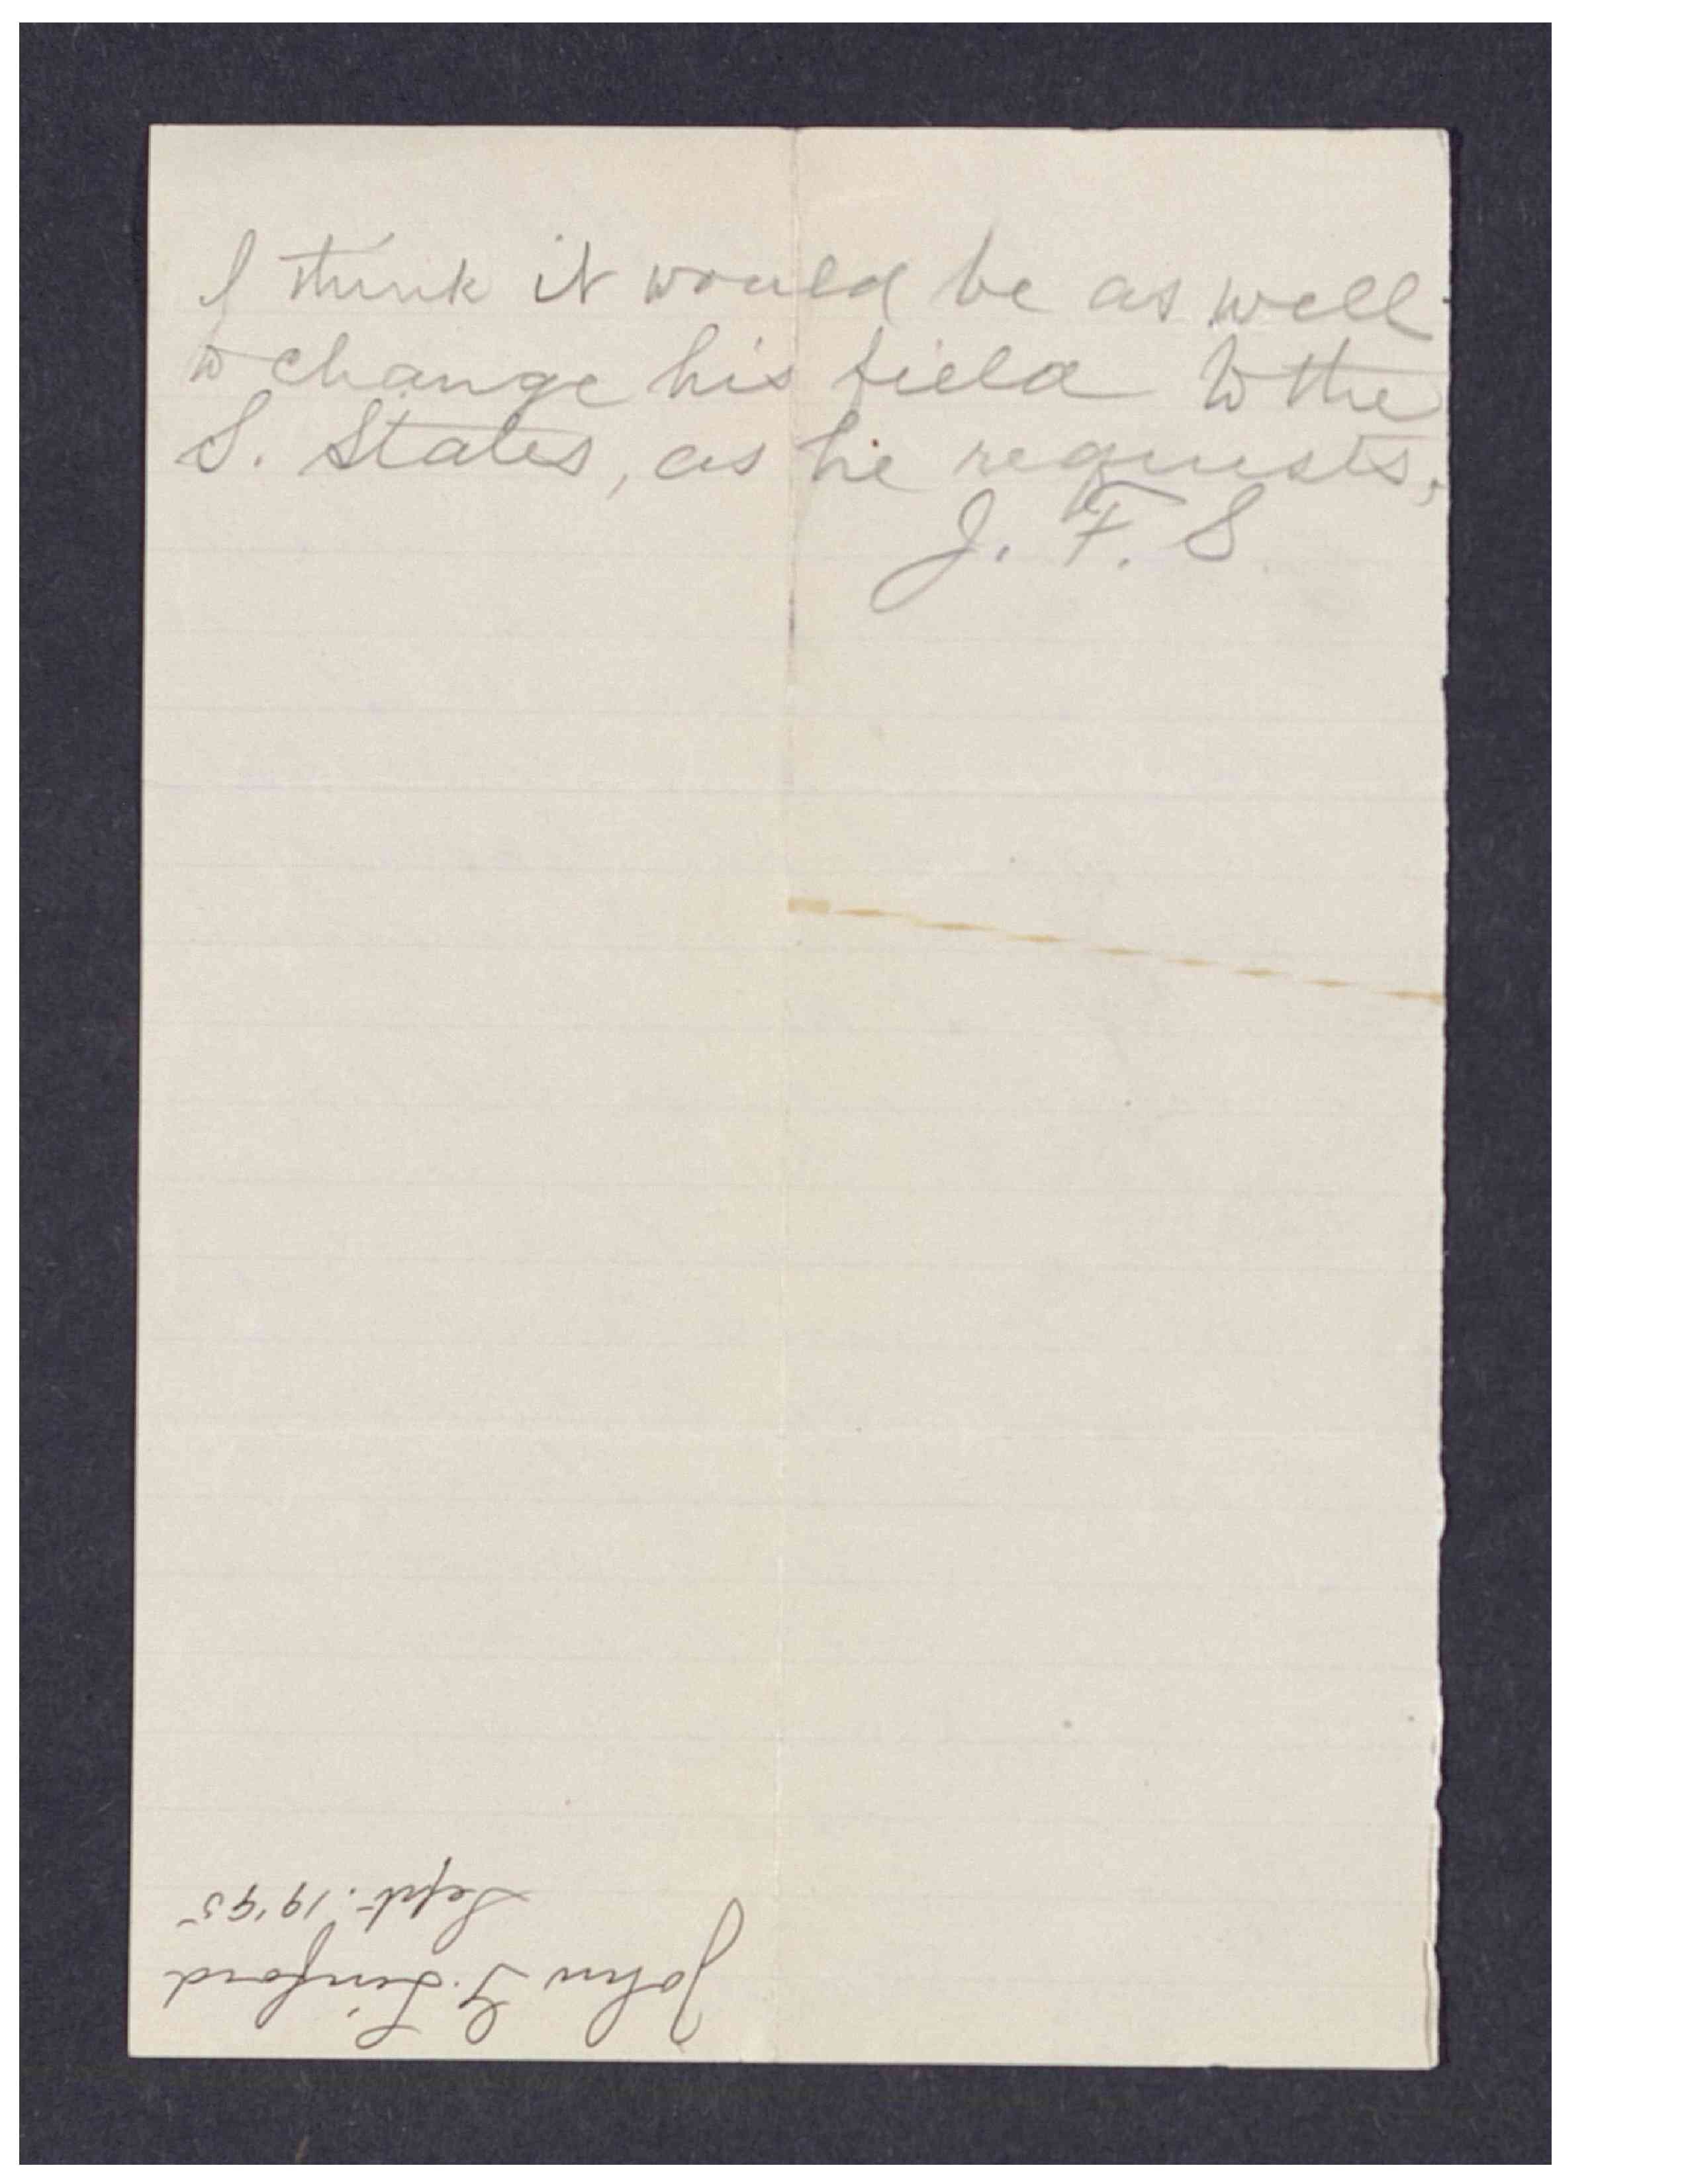 I think it would be as well
to change his field to the
S. States, as he requests,
J. F. S
John G. Linford
Sept. 19 '95